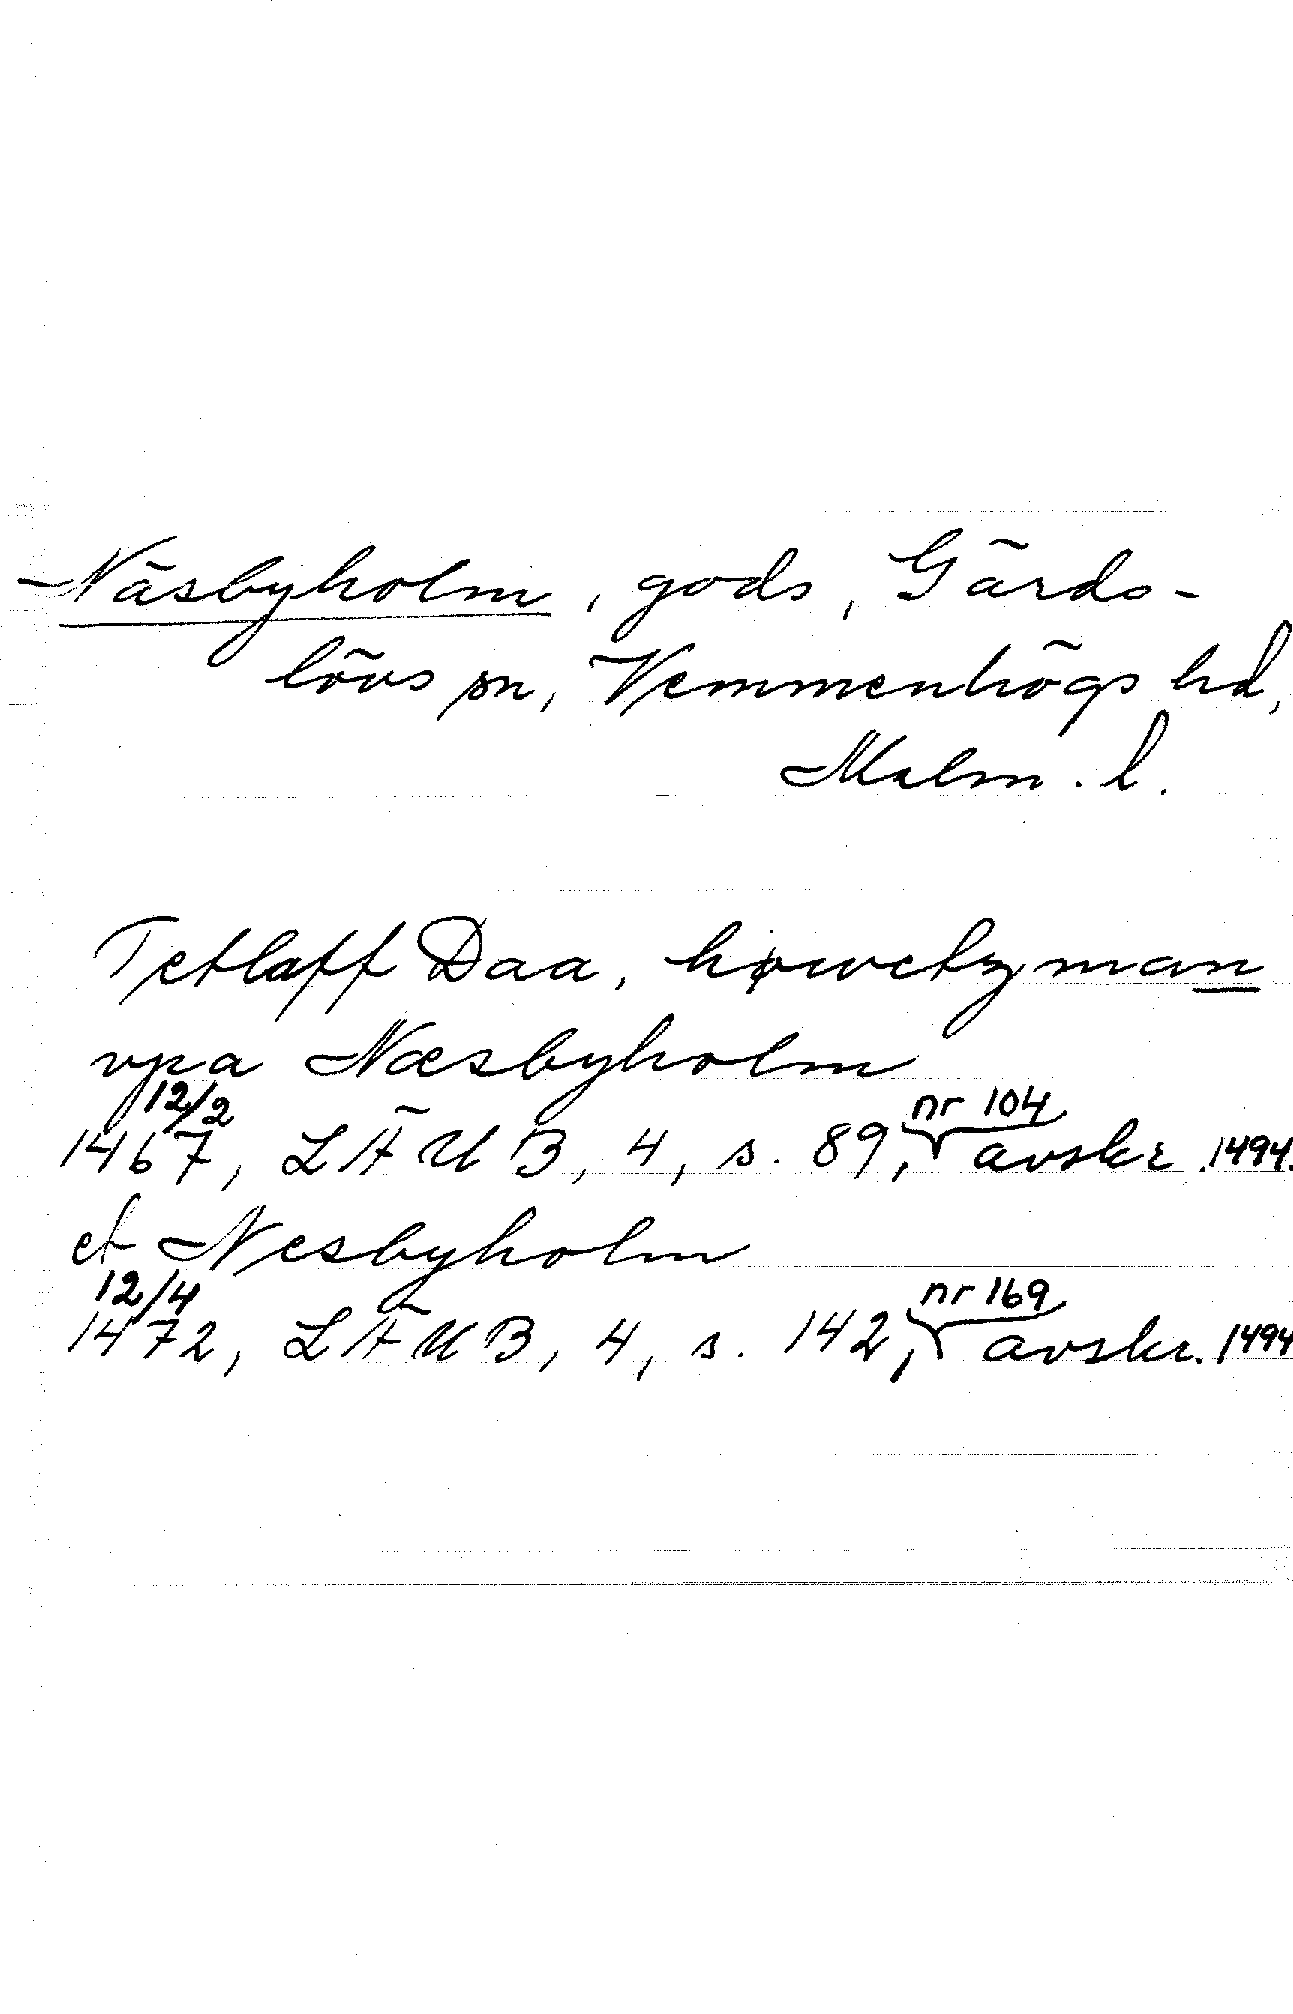 Näsbyholm, gods, Gärds-
lövs sn, Vemmenhögs hd,
Malm. l.
Tetlaff Daa, høwetzman
vpa Næsbyholm
12/2 nr 104
1467, LÄUB, 4, s. 89, avskr. 1494.
et Nesbyholm
12/4 nr 169
1472, LÄUB, 4, s. 142, avskr. 1494